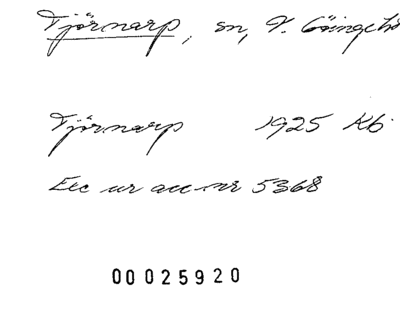 Tjörnarp, sn, V. Göinge hd
Tjörnarp 1925 Kb
Exc ur acc nr 5368
00025920